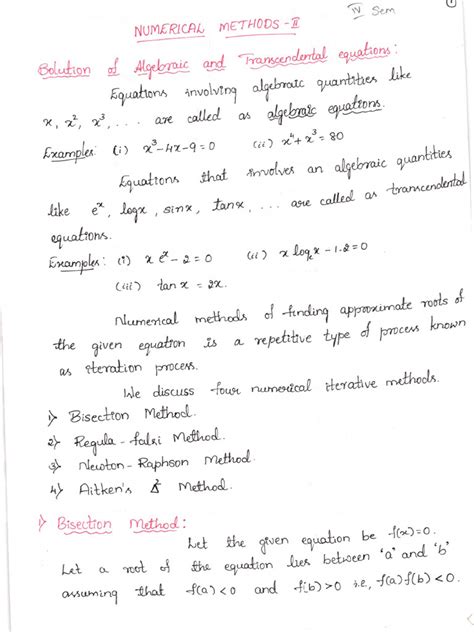 IV Sem
NUMERICAL METHODS - II
Solution of Algebraic and Transcendental equations:
Equations involving algebraic quantities like
x, x², x³, ... are called as algebraic equations.
Examples: (i) x³-4x-9=0 (ii) x⁴+x³=80
Equations that involves an algebraic quantities
like eˣ, logx, sinx, tanx, ... are called as transcendental
equations.
Examples: (i) x eˣ-2=0 (ii) x logₑx-1.2=0
(iii) tan x = 2x.
Numerical methods of finding approximate roots of
the given equation is a repetitive type of process known
as iteration process.
We discuss four numerical iterative methods.
1) Bisection Method.
2) Regula-falsi Method.
3) Newton-Raphson Method.
4) Aitken's Δ² Method.
1) Bisection Method:
Let the given equation be f(x)=0.
Let a root of the equation lies between 'a' and 'b'
assuming that f(a)<0 and f(b)>0 i.e, f(a)f(b)<0.